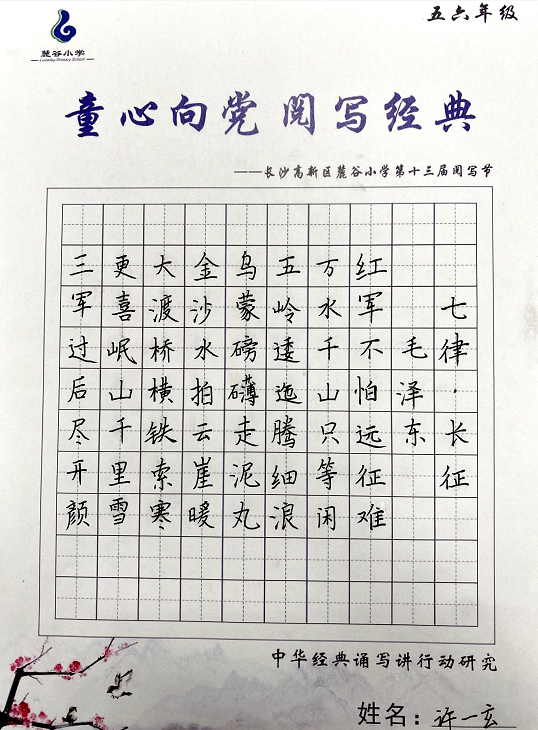 五六年级
麓谷小学
Lucwley Primary School
童心向党 阅写经典
——长沙高新区麓谷小学第十三届阅写节
七律·长征
毛泽东
红军不怕远征难
万水千山只等闲
五岭逶迤腾细浪
乌蒙磅礴走泥丸
金沙水拍云崖暖
大渡桥横铁索寒
更喜岷山千里雪
三军过后尽开颜
中华经典诵写讲行动研究
姓名：许一玄